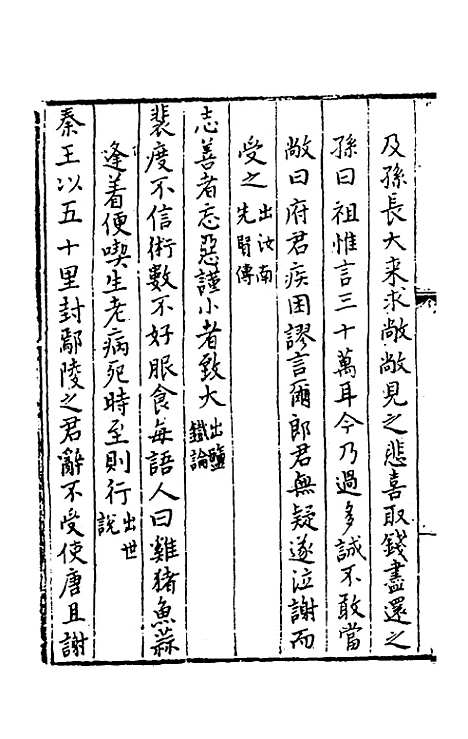 及孫長大来求敞敞見之悲喜取錢盡還之
孫曰祖惟言三十萬耳今乃過多誠不敢當
敞曰府君疾困謬言爾郎君無疑遂泣謝而
受之出汝南先賢傳
志善者忘惡謹小者致大出鹽鐵論
裴度不信術數不好服食每語人曰雞猪魚蒜
逢着便喫生老病死時至則行出世說
秦王以五十里封鄢陵之君辭不受使唐且謝